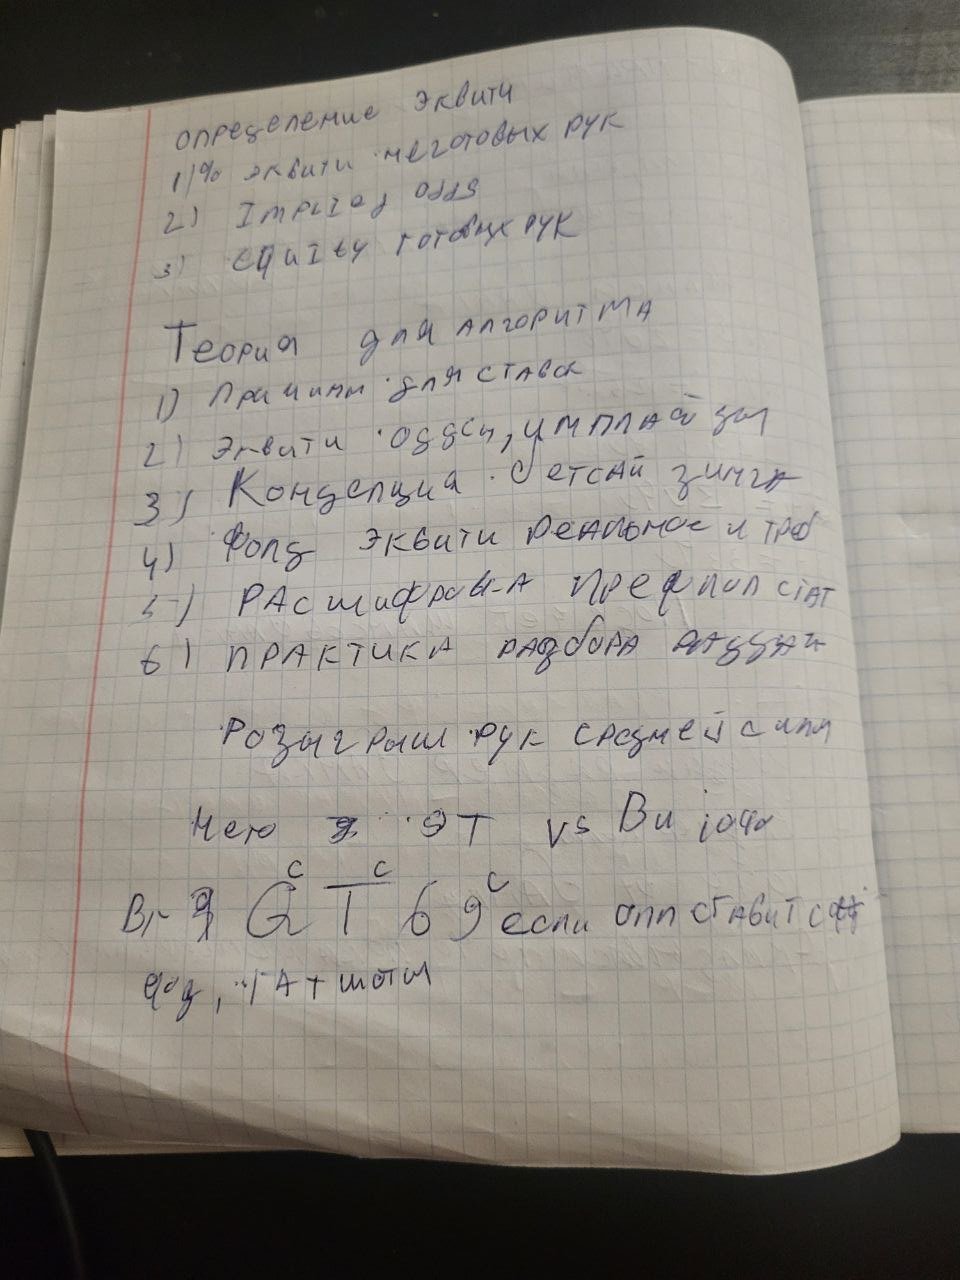 определение эквити
1) % эквити неготовых рук
2) Implied odds
3) equity готовых рук
Теория для алгоритма
1) Причины для ставок
2) Эквити оддсы, имплайдзы
3) Концепция бетсайзинга
4) Фолд эквити реальное и треб
5) РАсшифровкА Префлоп СТАТ
6) ПРАКТИКА разборА раздач
Розыгрыш рук средней силы
9T vs BU
G T 6 9 если опп ставит